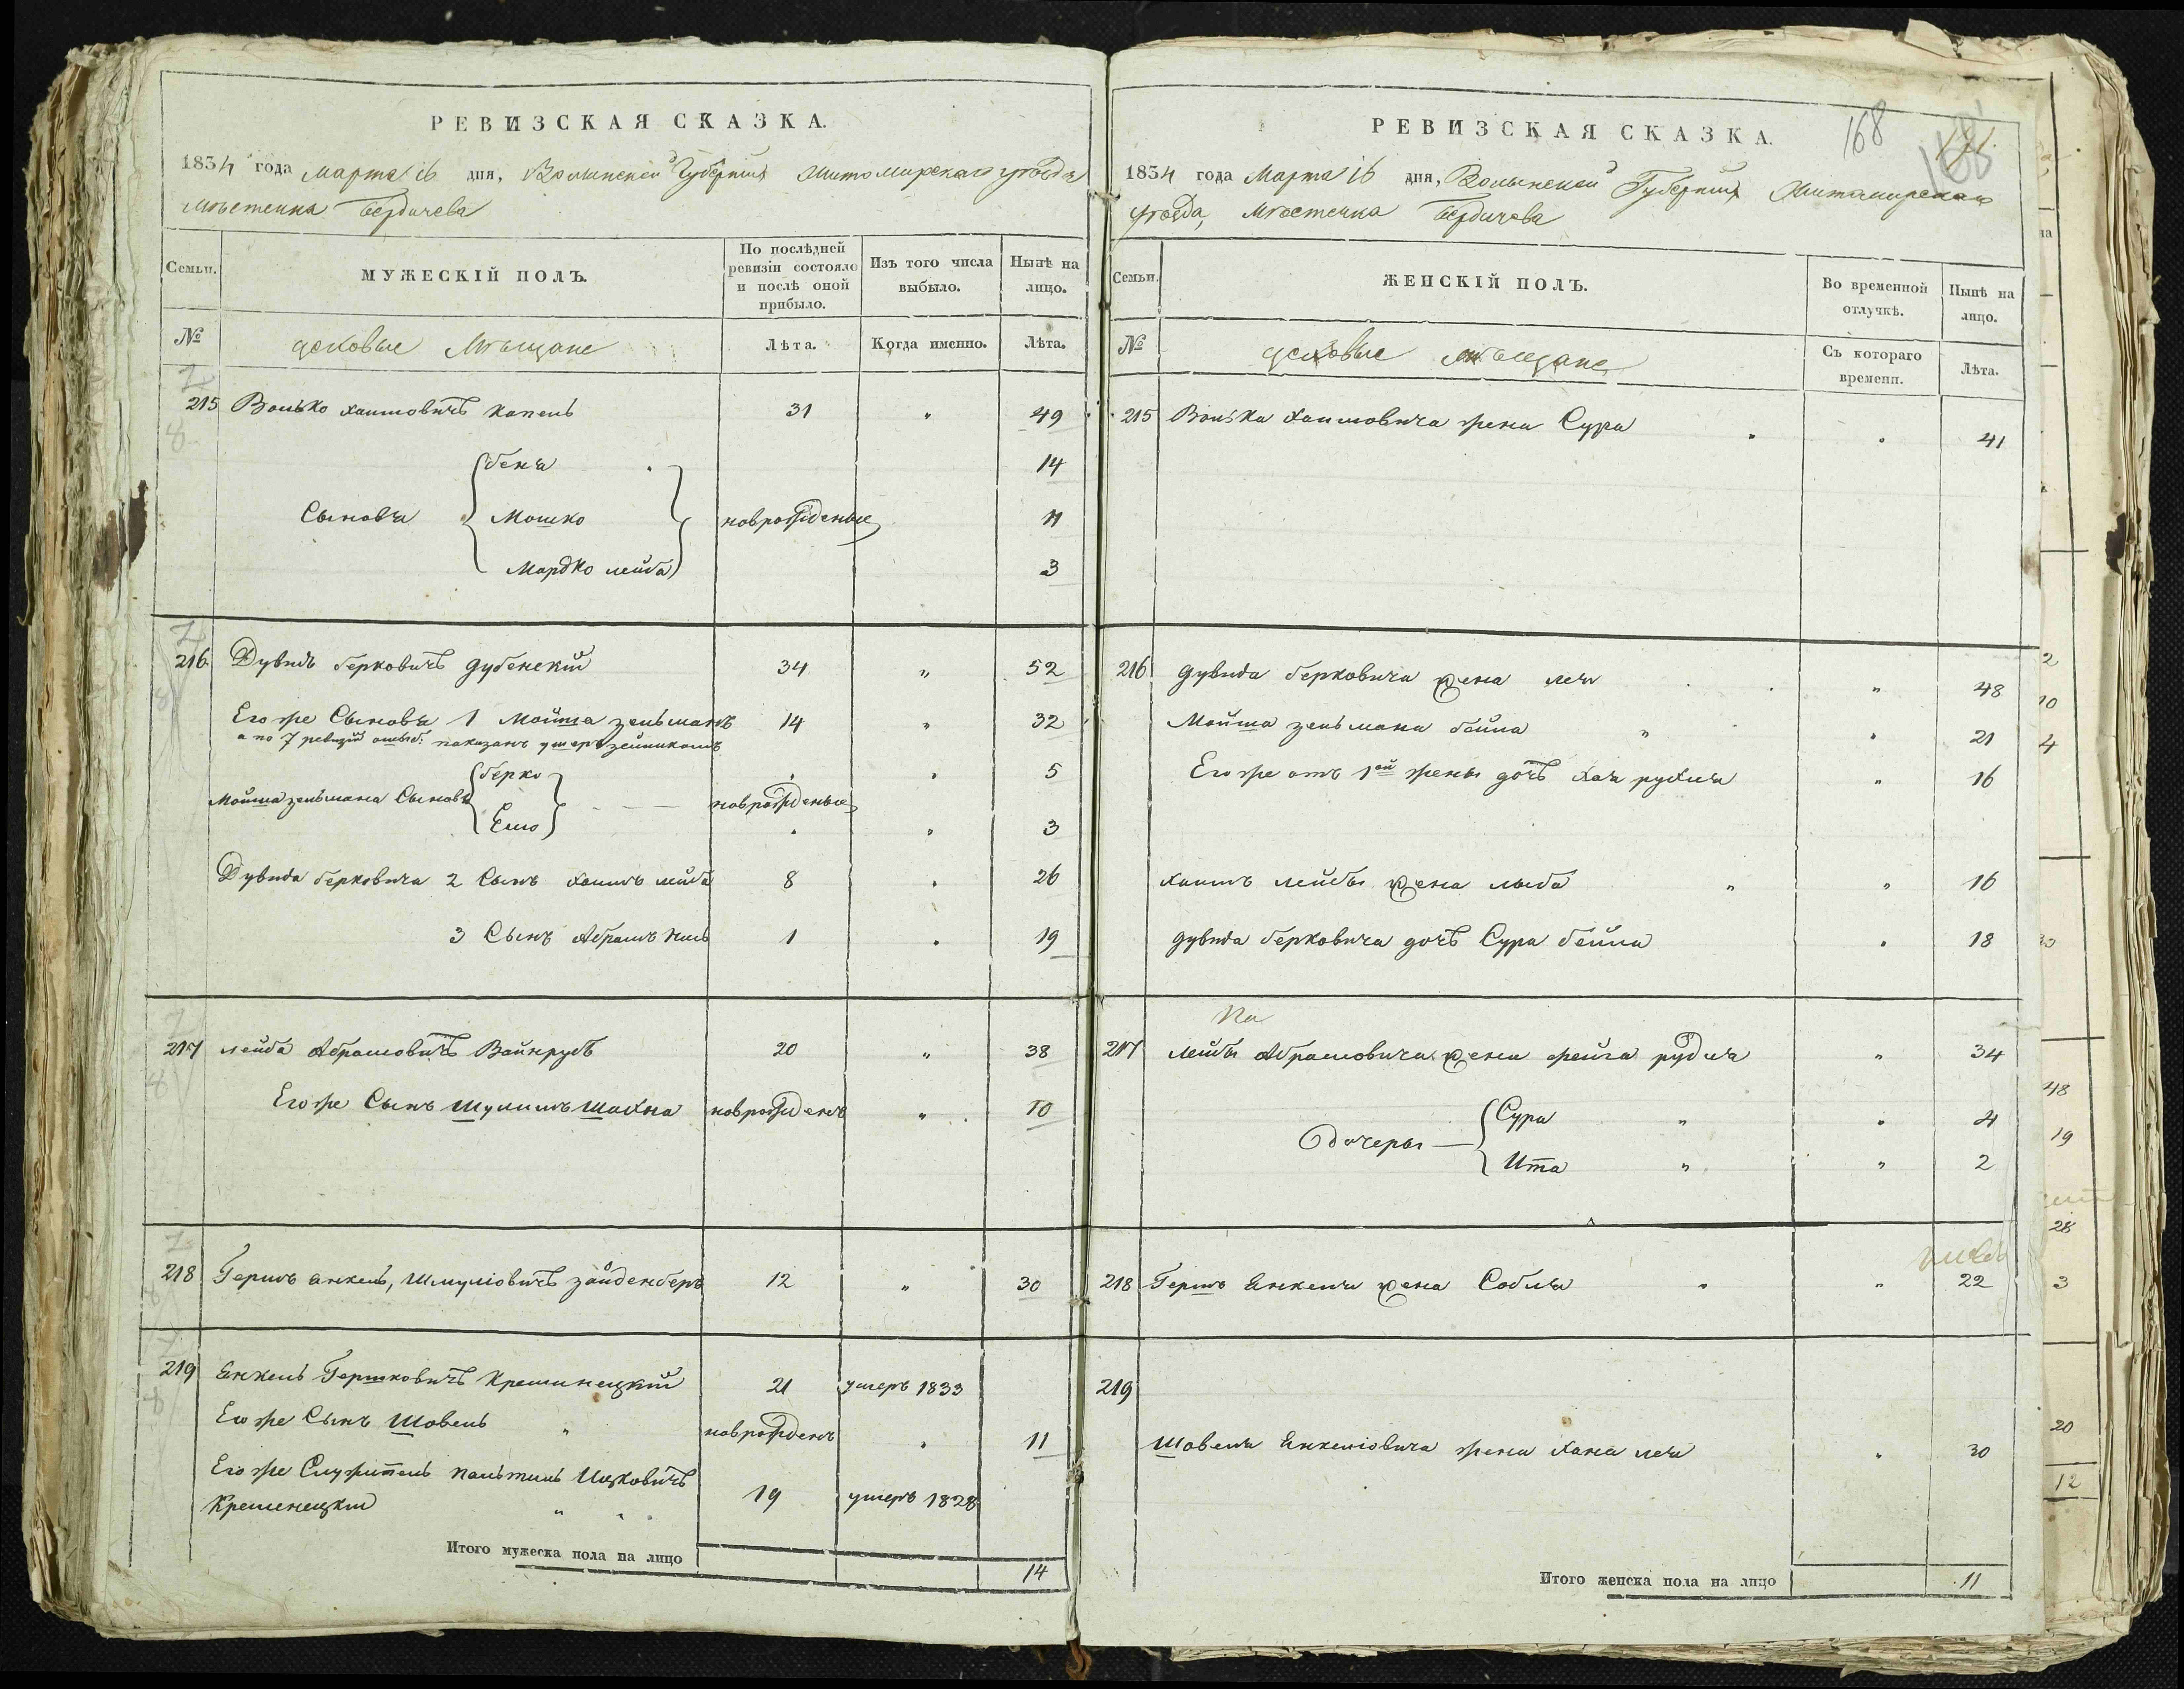 РЕВИЗСКАЯ СКАЗКА.
1834 года Марта 16 дня, Волынской Губерніи Житомирскаго уѣзда
мѣстечка Бердичева
Семьи.
МУЖЕСКІЙ ПОЛЪ.
По послѣдней ревизіи состояло и послѣ оной прибыло.
Изъ того числа выбыло.
Нынѣ на лицо.
№
Мѣщане
Лѣта.
Когда именно.
Лѣта.
215 Волько Хаимовичъ Капель 31 „ 49
Сыновья
беня 14
Мошко новорожденые 11
Мордко лейба 3
216 Дувидъ берковичъ дубенскій 34 „ 52
Его же Сыновья 1 Мойша зельманъ 14 „ 32
а по 7 ревизіи показанъ умеръ
Мойша зельмана Сыновья новорожденые
берко „ 5
„ 3
Дувида берковича 2 Сынъ хаимъ лейба 8 „ 26
3 Сынъ Абрамъ 1 „ 19
217 лейба Абрамовичъ Вайнрубъ 20 „ 38
Его же Сынъ Шулимъ Шахна новорожденъ „ 10
218 Гершъ Янкель, Шмуліовичъ зайденберъ 12 „ 30
219 Янкель Гершковичъ Кременецкій 21 умеръ 1833
Его же Сынъ Шовель „ новорожденъ „ 11
Его же Служитель пальтиель Ицковичъ
Кременецкій „ „ 19 умеръ 1828
Итого мужеска пола на лицо 14
168
РЕВИЗСКАЯ СКАЗКА.
1834 года Марта 16 дня, Волынской Губерніи Житомирскаго
уѣзда, мѣстечка Бердичева
Семьи.
ЖЕНСКІЙ ПОЛЪ.
Во временной отлучкѣ.
Нынѣ на лицо.
№
мѣщане
Съ котораго времени.
Лѣта.
215 Волька Хаимовича жена Сура „ „ 41
216 дувида берковича жена лея „ 48
Мойша зельмана бейла „ „ 21
Его же отъ 1ой жены дочь Хая рухля „ 16
хаимъ лейбы жена лыба „ „ 16
дувида берковича дочь Сура бейла „ 18
217 лейбы Абрамовича жена фейга рудля „ 34
дочеры
Сура „ „ 4
Ита „ „ 2
218 Гершъ Янкеля жена Собля „ „ 22
219
Шовеля Янкеліовича жена Хана лея „ 30
Итого женска пола на лицо 11